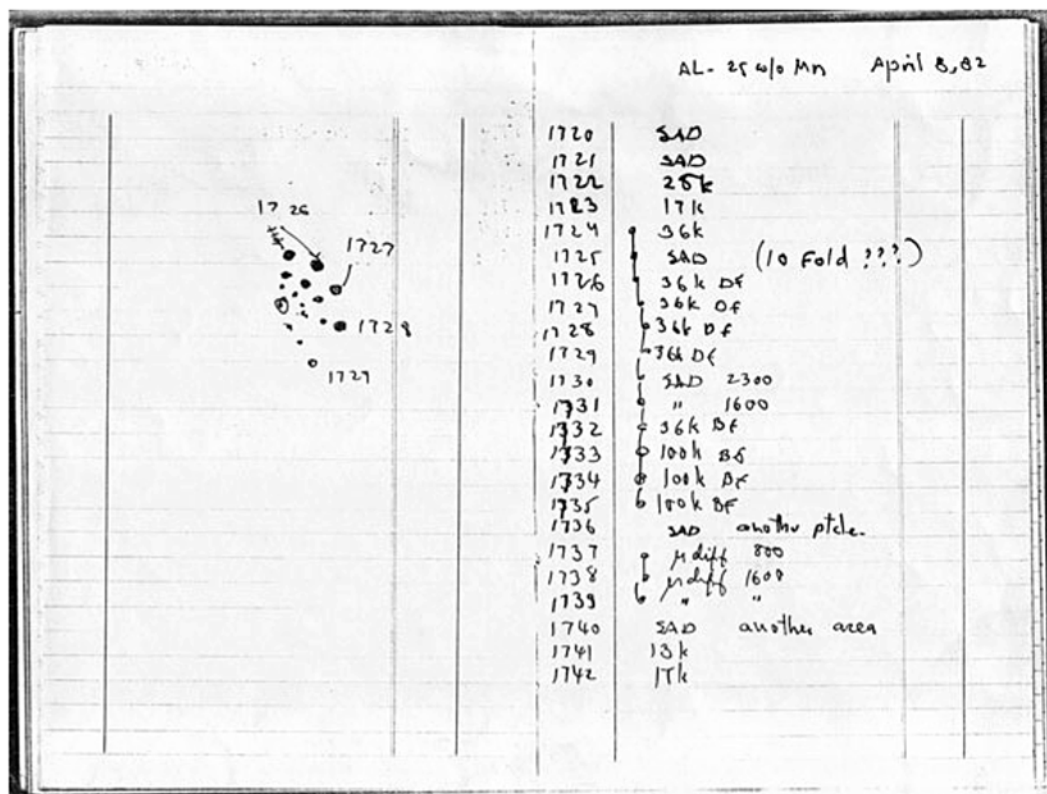 AL-25 w/o Mn April 8, 82
1720 SAD
1721 SAD
1722 25k
1723 17k
1724 36k
1725 SAD (10 Fold ???)
1726 36k DF
1727 36k DF
1728 36k DF
1729 36k DF
1730 SAD 2300
1731 " 1600
1732 36k BF
1733 100k BF
1734 100k BF
1735 100k BF
1736 SAD another ptcle.
1737 μdiff 800
1738 μdiff 1600
1739 " "
1740 SAD another area
1741 13k
1742 17k
1726
1727
1728
1729